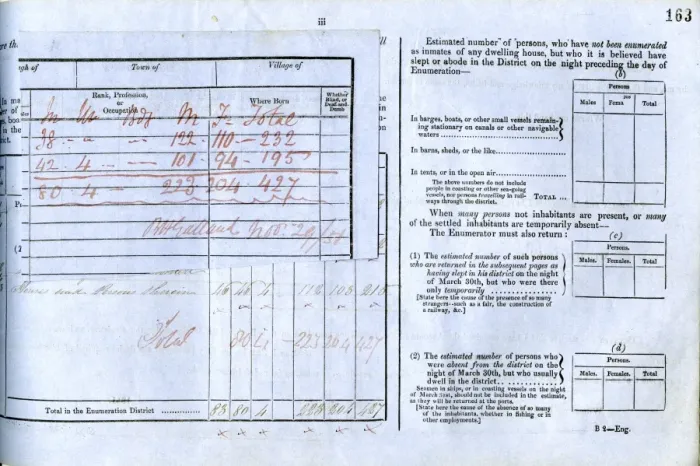 163
iii
gh of Town of Village of
Rank, Profession, or Occupation Where Born Whether Blind, or Deaf-and-Dumb
In Un Bdg M F Total
38 - " - 122 - 110 - 232
42 4 - - 101 - 94 - 195
80 4 - 223 204 427
Total 80 4 - 223 204 427
Total in the Enumeration District .............. 83 80 4 223 204 427
Estimated number of persons, who have not been enumerated
as inmates of any dwelling house, but who it is believed have
slept or abode in the District on the night preceding the day of
Enumeration—
(b)
Persons
Males Fema Total
In barges, boats, or other small vessels remain-
ing stationary on canals or other navigable
waters
In barns, sheds, or the like
In tents, or in the open air
The above numbers do not include
people in coasting or other sea-going
vessels, nor persons travelling in rail-
ways through the district. TOTAL ...
When many persons not inhabitants are present, or many
of the settled inhabitants are temporarily absent—
The Enumerator must also return :
(c)
Persons.
Males. Females. Total
(1) The estimated number of such persons
who are returned in the subsequent pages as
having slept in his district on the night
of March 30th, but who were there
only temporarily
[State here the cause of the presence of so many
strangers--such as a fair, the construction of
a railway, &c.]
(d)
Persons.
Males. Females. Total
(2) The estimated number of persons who
were absent from the district on the
night of March 30th, but who usually
dwell in the district
Seamen in ships, or in coasting vessels on the night
of March 30th, should not be included in the estimate,
as they will be returned at the ports.
[State here the cause of the absence of so many
of the inhabitants, whether in fishing or in
other employments.]
B 2—Eng.